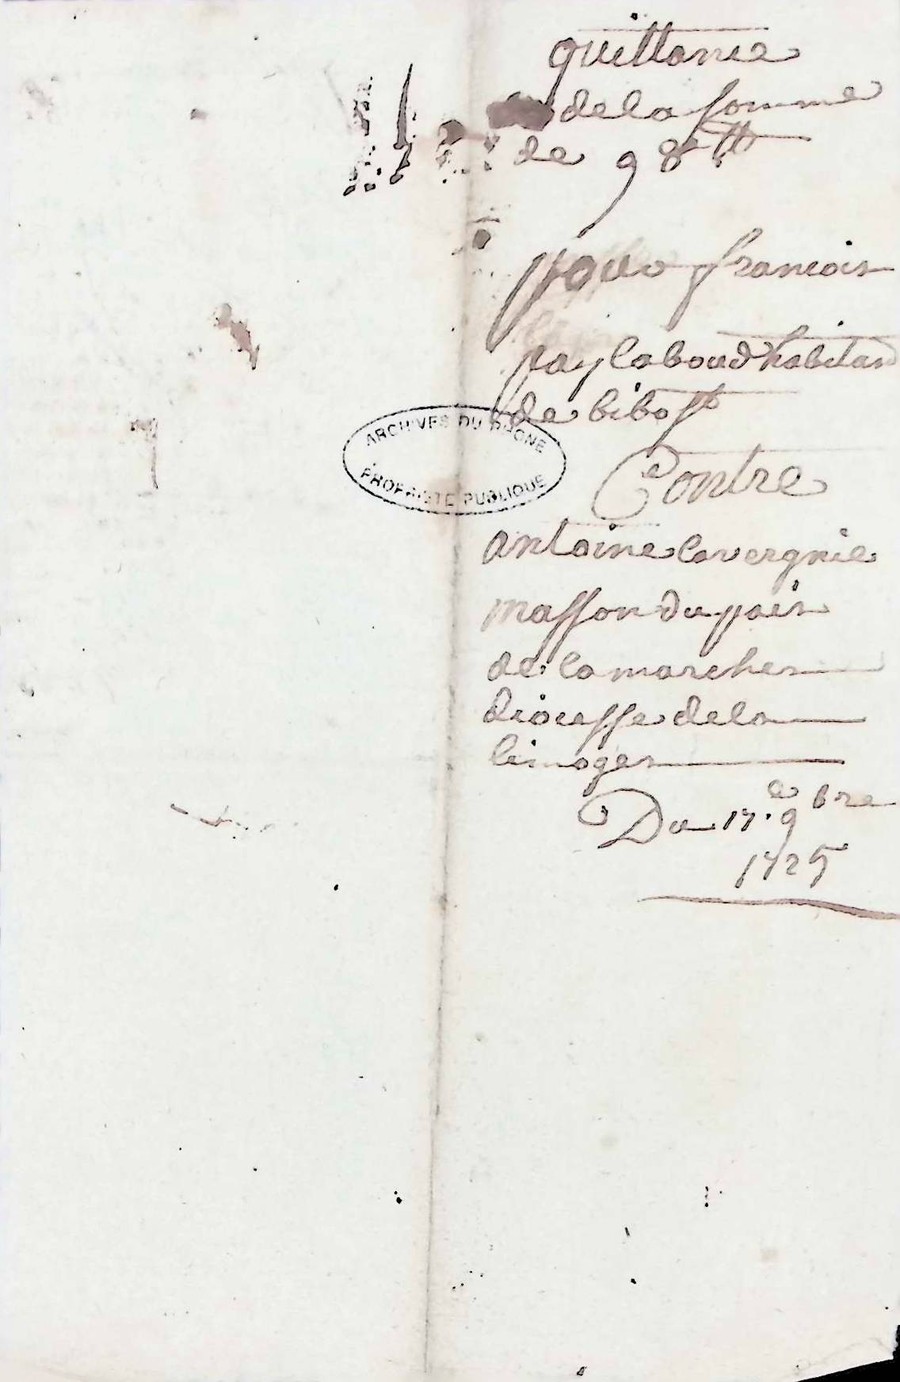 quittance
de la somme
de 98 ₶
pour francois
paylaboud habitan
de bibost
ARCHIVES DU RHONE
PROPRIÉTÉ PUBLIQUE
Contre
antoine lavergnie
masson du païs
de la marche
diocesse de la
limoges
Du 17.e 9bre
1725